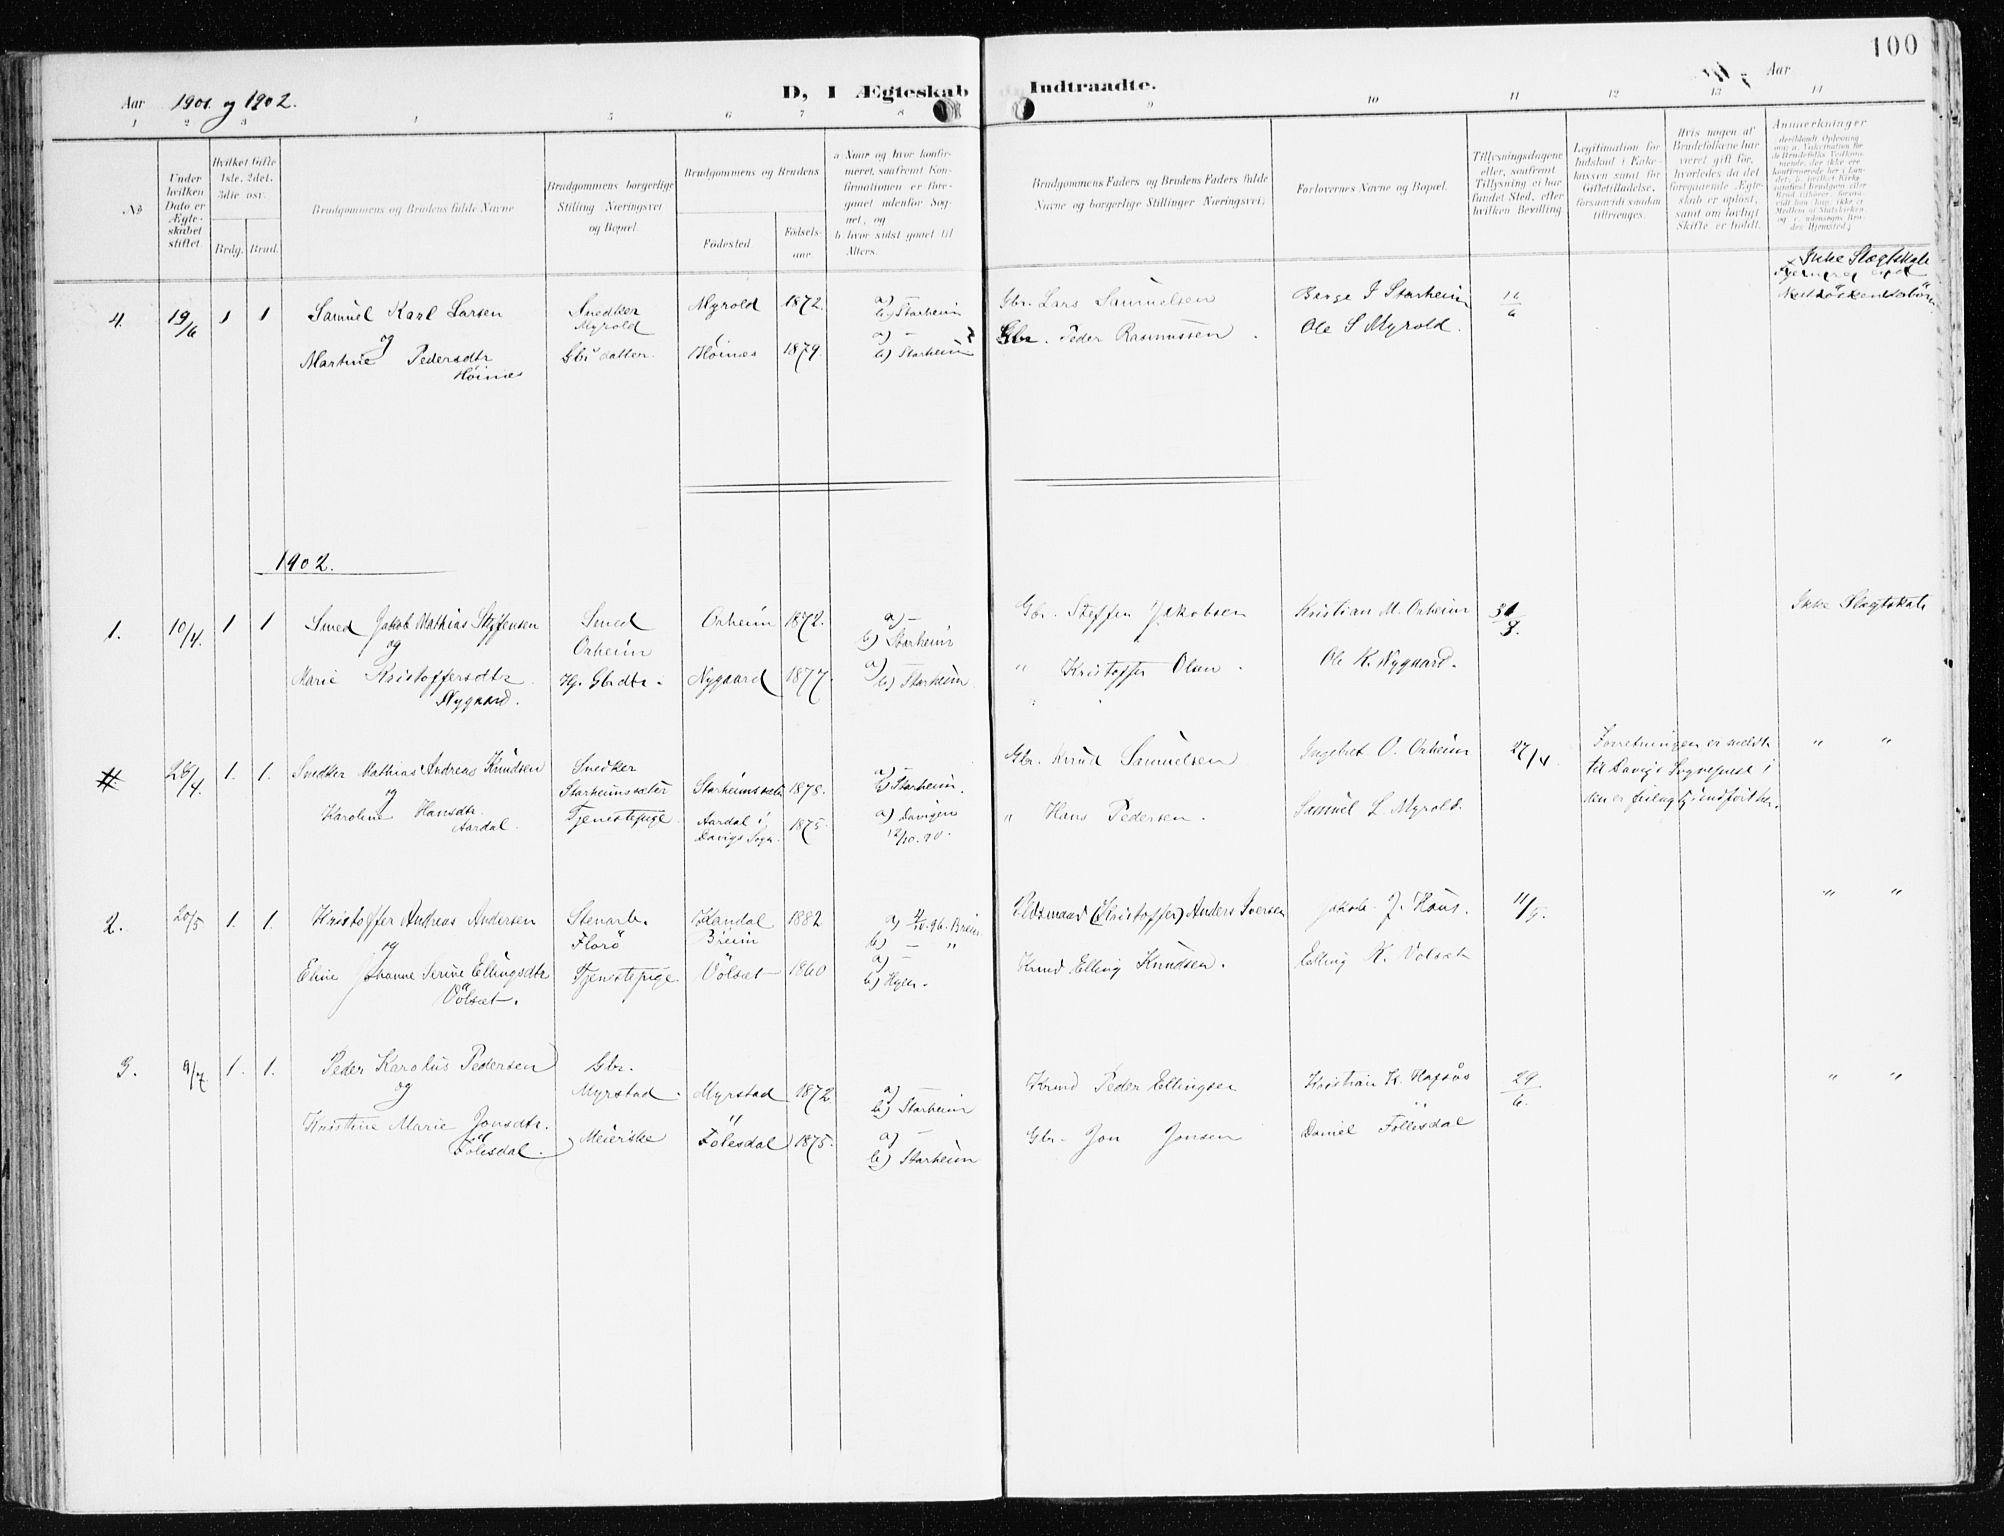 100
Aar 1901 og 1902.
D, I Ægteskab Indtraadte.
Aar
1 2 3 4 5 6 7 8 9 10 11 12 13 14
No
Under hvilken Dato er Ægteskabet stiftet.
Hvilket Gifte 1ste, 2det, 3die osv.
Brdg. Brud.
Brudgommens og Brudens fulde Navne
Brudgommens borgerlige Stilling Næringsvei og Bopæl.
Brudgommens og Brudens
Fødested. Fødselsaar
a Naar og hvor konfirmeret, saafremt Konfirmationen er foregaaet udenfor Sognet, og
b hvor sidst gaaet til Alters.
Brudgommens Faders og Brudens Faders fulde Navne og borgerlige Stillinger Næringsvei;
Forlovernes Navne og Bopæl.
Tillysningsdagene eller, saafremt Tillysning ei har fundet Sted, efter hvilken Bevilling
Legitimation for Indskud i Enkekassen samt for Giftetilladelse, forsaavidt saadan tiltrænges.
Hvis nogen af Brudefolkene har været gift før, hvorledes da det foregaaende Ægteskab er opløst, samt om lovligt Skifte er holdt.
Anmerkninger
Ikke Slægtskab
4. 19/6 1 1 Samuel Karl Larsen Snedker Myrold 1872. a) — Gbr. Lars Samuelsen Børge J Starheim 16/6
Myrold b) Starheim
og Ole S Myrold.
Martine Pedersdtr Gbr datter. Høines 1879. a) — Gbr. Peder Rasmussen.
Høines b) Starheim
1902.
1. 10/4. 1 1 Smed Jakob Mathias Steffensen Smed Orheim 1872. a) — Gbr. Steffen Jakobsen Kristian M. Orheim Ikke Slægtskab
og Orheim b) Starheim
Marie Kristoffersdtr Gbrdtr. Nygaard 1877. a) — " Kristoffer Olsen. Ole K. Nygaard.
Nygaard. b) Starheim
26/4. 1. 1. Snedker Mathias Andreas Knudsen Snedker a) — Gbr. Knud Samuelsen Ingebret O. Orheim 27/4 Forretningen er meldt " "
og Starheimssæter Starheimssæter 1878. b) Starheim. til Davigs Sogneprest i
Karoline Hansdtr. Tjenestepige. Aardal i 1875. a) Davigen " Hans Pedersen. Samuel L. Myrold. den er feilagtig indført her.
Aardal. Davigs Sogn. 12/10.90.
2. 20/5 1. 1. Kristoffer Andreas Andersen Stenarb. Kandal 1882 a) 4/10.96. Breim Pladsmand (Kristoffer) Anders Iversen Jakob J. Haus. 11/5. " "
og Florø Breim b) — "
Eline Johanne Serine Ellingsdtr Tjenestepige. Vólsæt 1860 a) — Knud Elling Knudsen. Elling K. Volsæt
Vólsæt. b) Hyen.
3. 9/7. 1. 1. Peder Karolus Pedersen Gbr.
og Myrstad. Myrstad 1872. a) — Knud Peder Ellingsen Kristian K. Hafsås 29/6. " "
b) Starheim
Kristine Marie Jonsdtr. Meierske Fölesdal 1875. a) — Gbr. Jon Jonsen Daniel Föllesdal
Fölesdal. b) Starheim